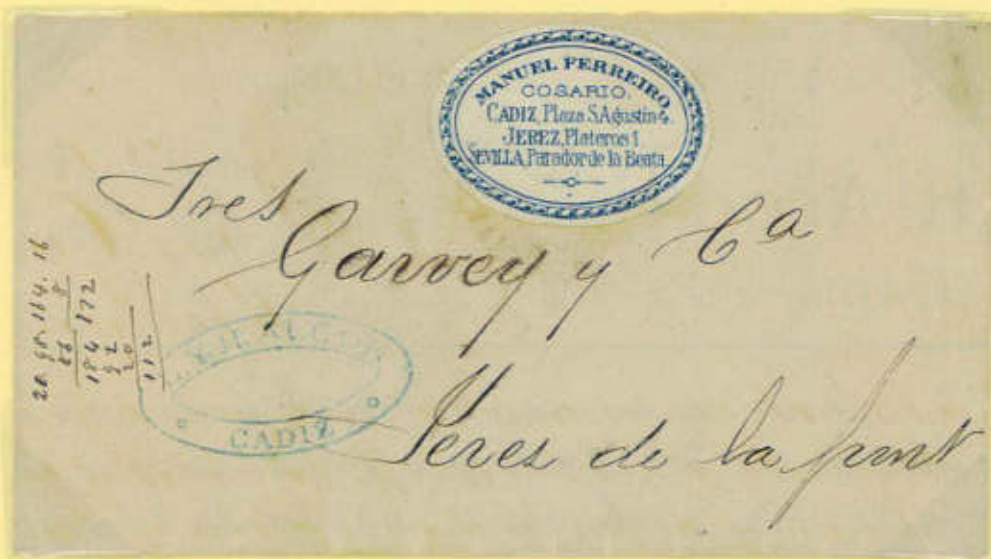 MANUEL FERREIRO
COSARIO.
CADIZ, Plaza S. Agustin 4.
JEREZ, Plateros 1
SEVILLA, Parador de la Beata
Sres
Garvey y Cª
Jerez de la
CADIZ
184 172
92
20
112